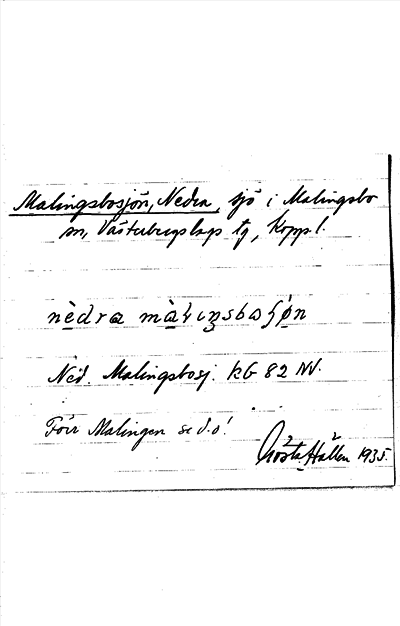 Malingsbosjön, Nedra, sjö i Malingsbo
sn, Västerbergslags tg, Kopp l.
nèdra màlɩŋsbaʃø̀n
Ned. Malingsbosj. kG 82 NV.
Förr Malingen se d. o!
Gösta Hallén 1935.